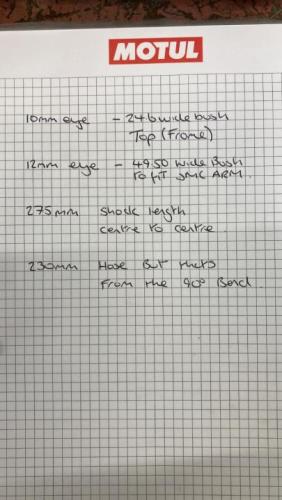 MOTUL
10mm eye - 24.6 wide bush
Top (Frame)
12mm eye - 49.50 wide Bush
to fit JMC ARM.
275mm Shock length
centre to centre.
230mm Hose But
From the 90° Bend.